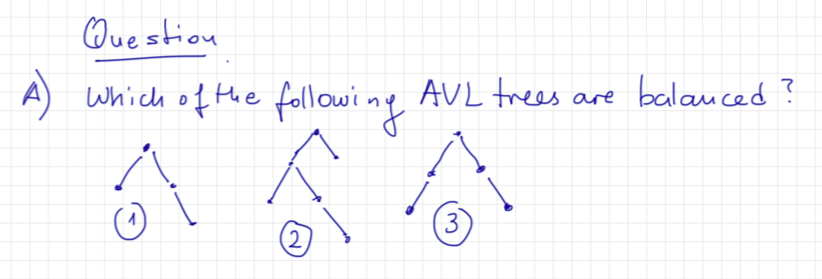 Question
A) Which of the following AVL trees are balanced?
1 2 3